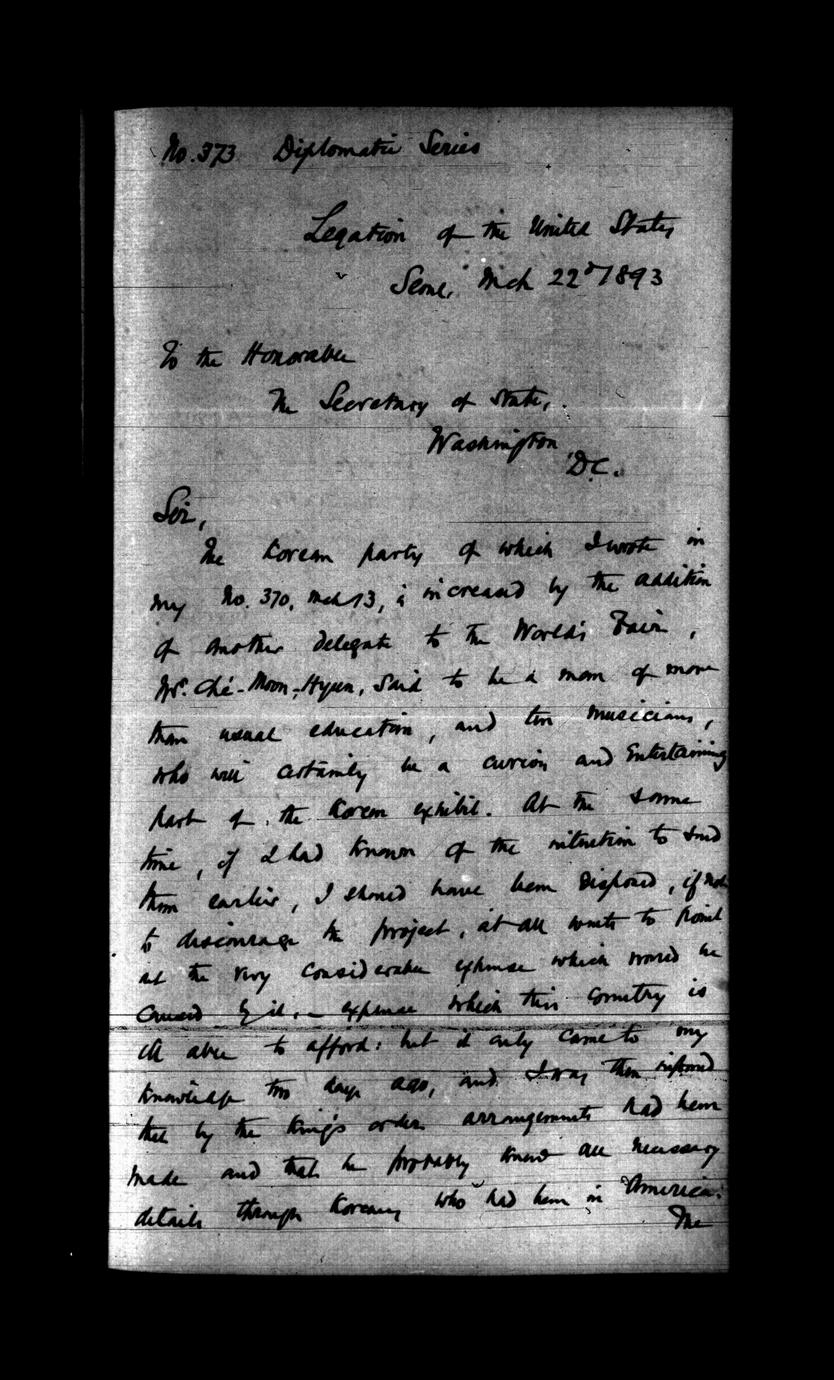 No. 373 Diplomatic Series
Legation of the United States
Seoul, Mch 22d 1893
To the Honorable
The Secretary of State,
Washington
D.C.
Sir,
The Korean party of which I wrote in
my No. 370, Mch 13, is increased by the addition
of another delegate to the World's Fair,
Mr. Ché-Moon-Hyun, said to be a man of more
than usual education, and ten musicians,
who will certainly be a curious and entertaining
part of the Korean exhibit. At the same
time, if I had known of the intention to send
them earlier, I should have been disposed, if not
to discourage the project, at all events to point
out the very considerable expense which would be
caused by it, — expense which this country is
ill able to afford: but it only came to my
knowledge two days ago, and I was then informed
that by the King's order arrangements had been
made and that he probably knew all necessary
details through Koreans who had been in America.
The